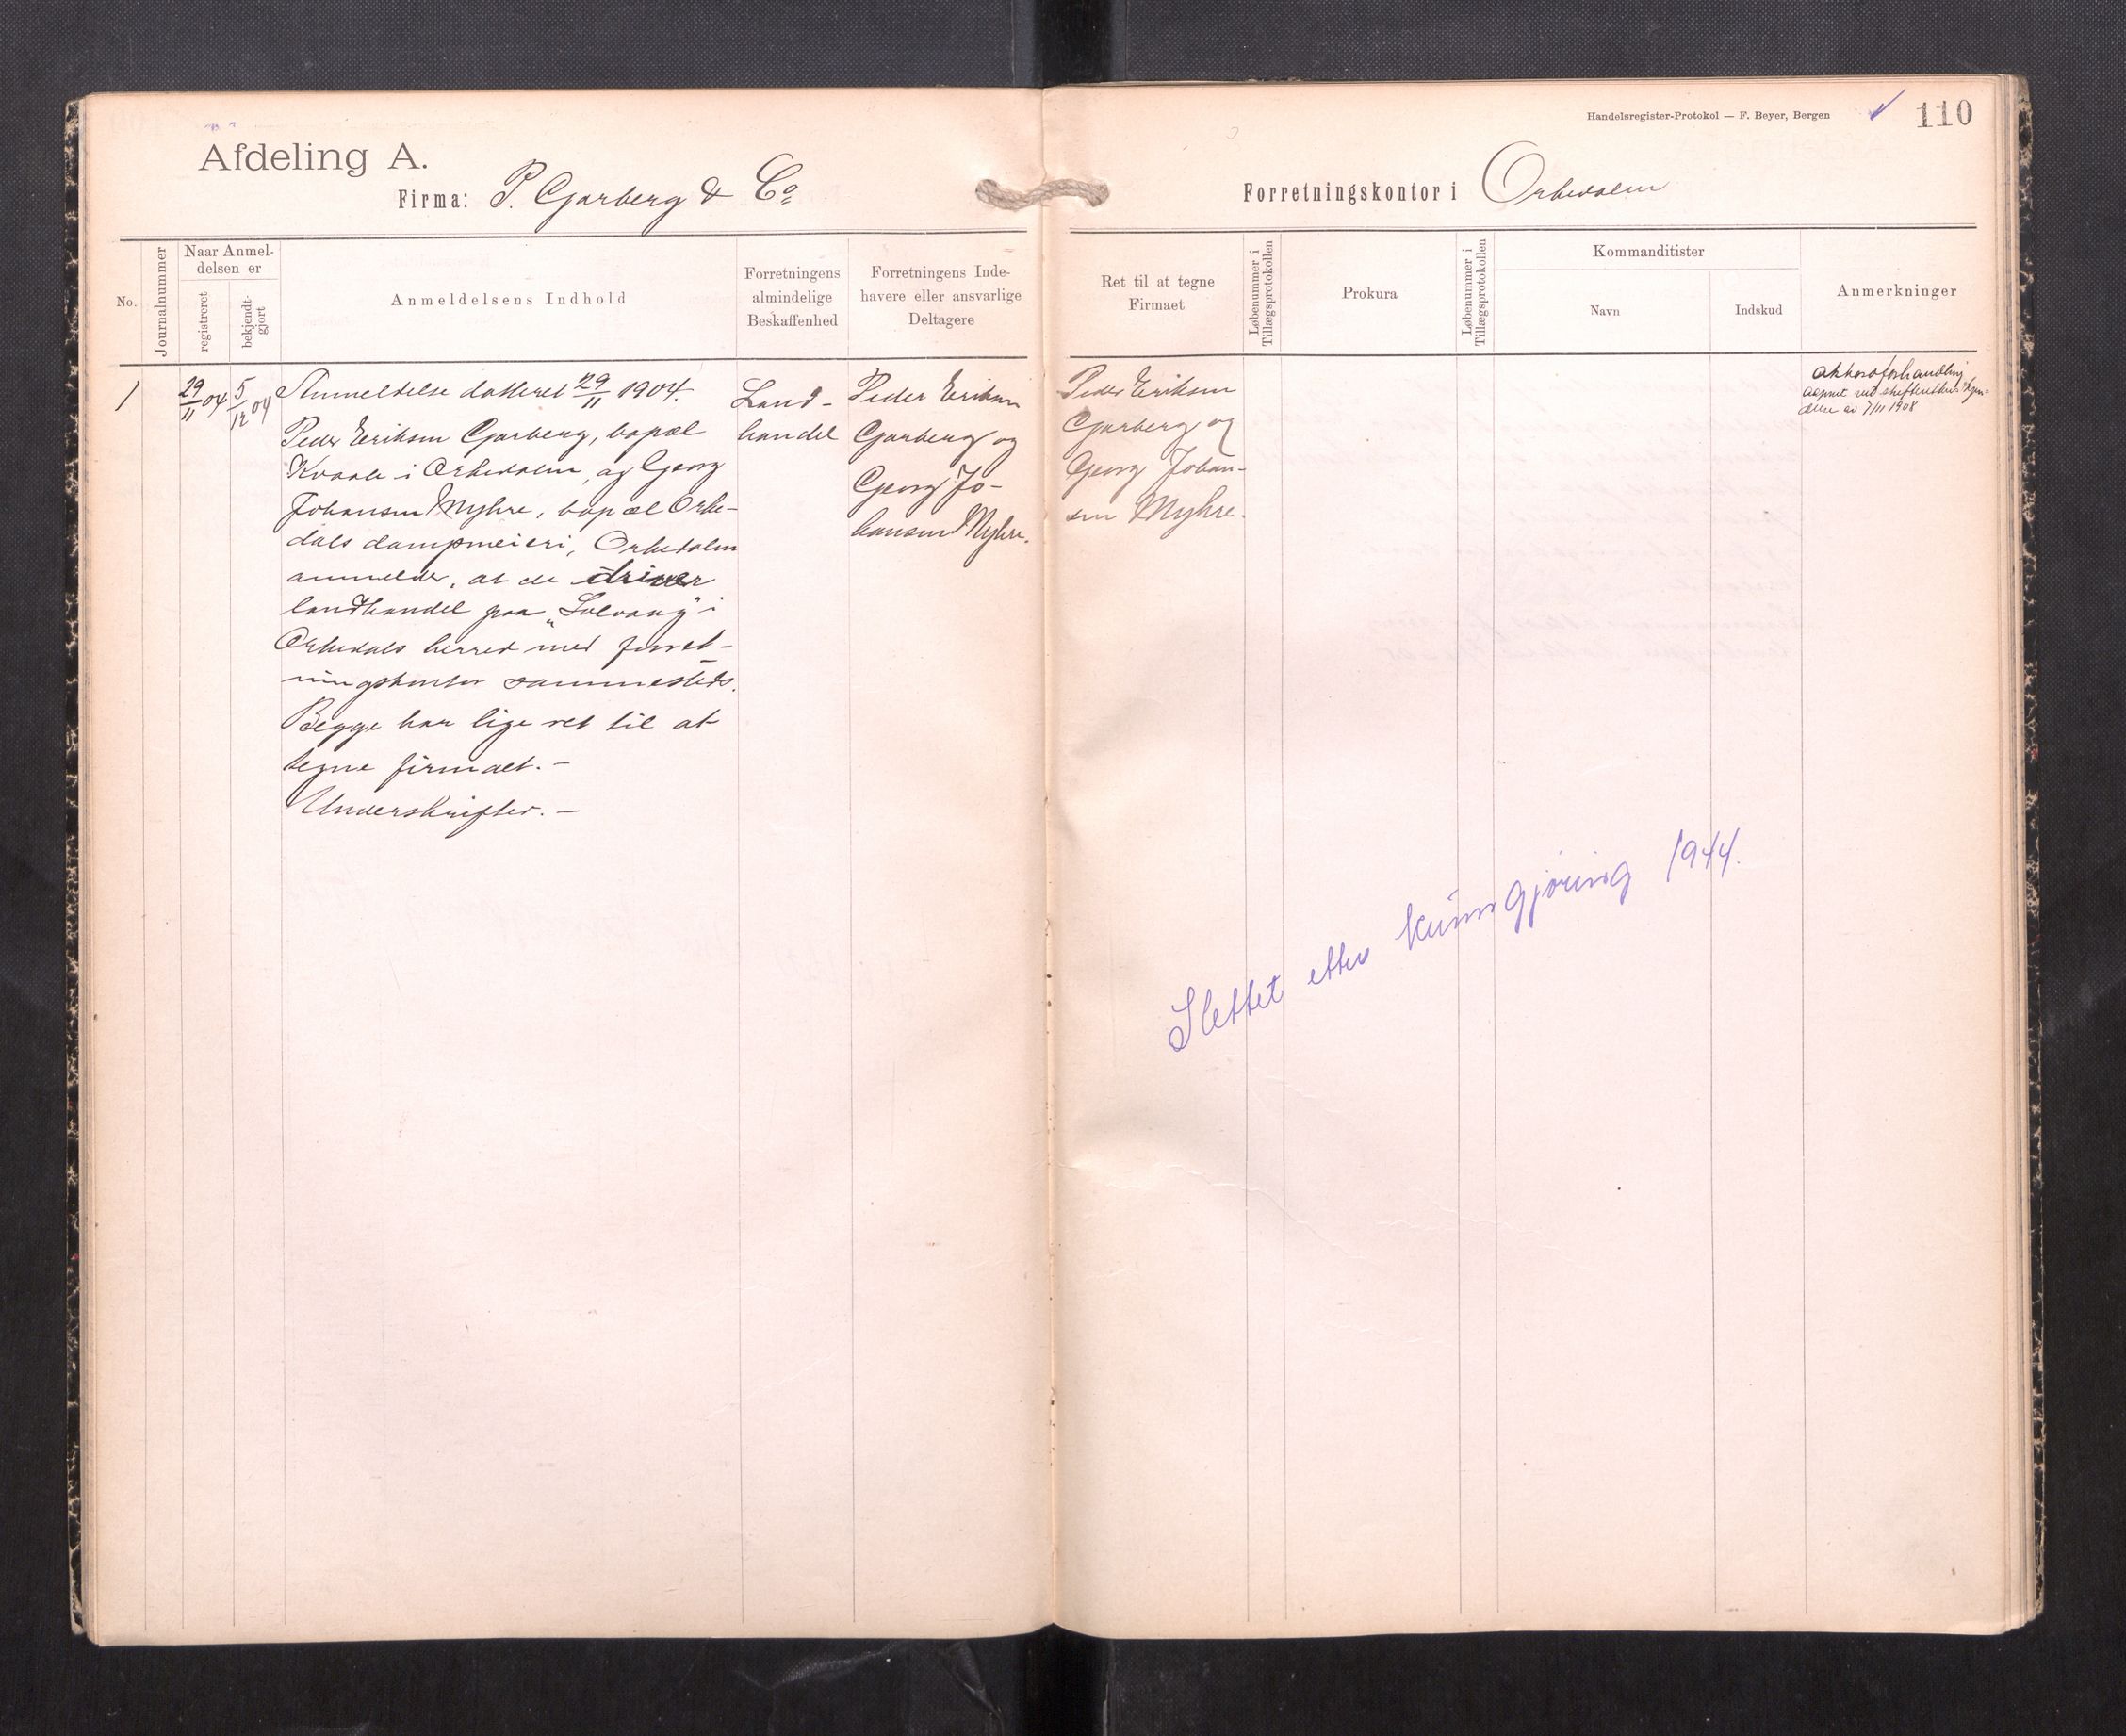 Handelsregister-Protokol — F. Beyer, Bergen
110
Afdeling A.
Firma: P. Garberg & Co
Forretningskontor i Orkedalen
No.
Journalnummer
Naar Anmel-
delsen er
registreret
bekjendt-
gjort
Anmeldelsens Indhold
Forretningens
almindelige
Beskaffenhed
Forretningens Inde-
havere eller ansvarlige
Deltagere
Ret til at tegne
Firmaet
Løbenummer i
Tillægsprotokollen
Prokura
Løbenummer i
Tillægsprotokollen
Kommanditister
Navn
Indskud
Anmerkninger
1
29/11 04
5/12 04
Anmeldelse datteret 29/11 1904.
Peder Eriksen Garberg, bopæl
Kvaale i Orkedalen, og Georg
Johansen Myhre, bopæl Orke-
dals dampmeieri, Orkedalen
anmelder, at de driver
landhandel paa „Solvang" i
Orkedals herred med forret-
ningskontor sammesteds.
Begge har lige ret til at
tegne firmaet. —
Underskrifter. —
Land-
handel
Peder Eriksen
Garberg og
Georg Jo-
hansen Myhre.
Peder Eriksen
Garberg og
Georg Johan-
sen Myhre.
Akkordforhandling
aapnet ved skifterettens kjen-
delse av 7/11 1908
Slettet etter kunngjøring 1944.